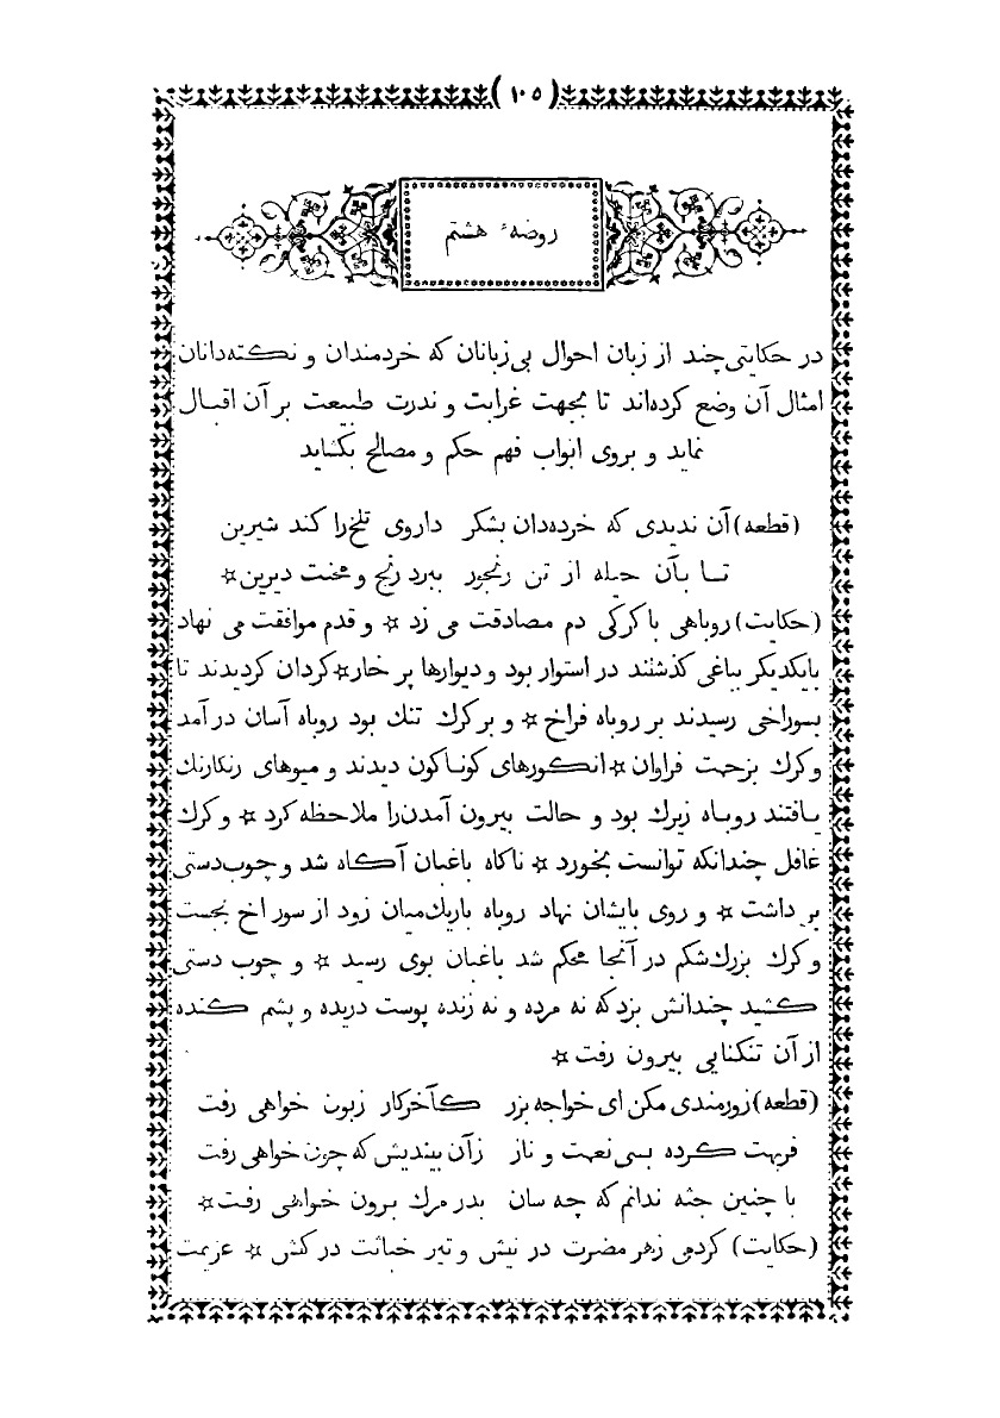 (١٠٥)
روضهٔ هشتم
در حکایتی چند از زبان احوال بی‌زبانان که خردمندان و نکته‌دانان
امثال آن وضع کرده‌اند تا بجهت غرابت و ندرت طبیعت بر آن اقبال
نماید و بروی ابواب فهم حکم و مصالح بکشاید
(قطعه) آن ندیدی که خرده‌دان بشکر داروی تلخ‌را کند شیرین
تا بآن حیله از تن رنجور ببرد رنج و محنت دیرین ☆
(حکایت) روباهی با کرکی دم مصادقت می زد ☆ و قدم موافقت می نهاد
بایکدیکر بباغی کذشتند در استوار بود و دیوارها پر خار ☆ کردان کردیدند تا
بسوراخی رسیدند بر روباه فراخ ☆ و بر کرك تنك بود روباه آسان در آمد
و کرك بزحمت فراوان ☆ انکورهای کوناکون دیدند و میوهای رنکارنك
یافتند روباه زیرك بود و حالت بیرون آمدن‌را ملاحظه کرد ☆ و کرك
غافل چندانکه توانست بخورد ☆ ناکاه باغبان آکاه شد و چوب‌دستی
بر داشت ☆ و روی بایشان نهاد روباه باریك‌میان زود از سوراخ بجست
و کرك بزرك‌شکم در آنجا محکم شد باغبان بوی رسید ☆ و چوب دستی
کشید چندانش بزد که نه مرده و نه زنده پوست دریده و پشم کنده
از آن تنکنایی بیرون رفت ☆
(قطعه) زورمندی مکن ای خواجه بزر کآخرکار زبون خواهی رفت
فربهت کرده بسی نعمت و ناز زآن بیندیش که چون خواهی رفت
با چنین جثه ندانم که چه سان بدر مرك برون خواهی رفت ☆
(حکایت) کژدمی زهر مضرت در نیش و تیر خباثت در کیش ☆ عزیمت